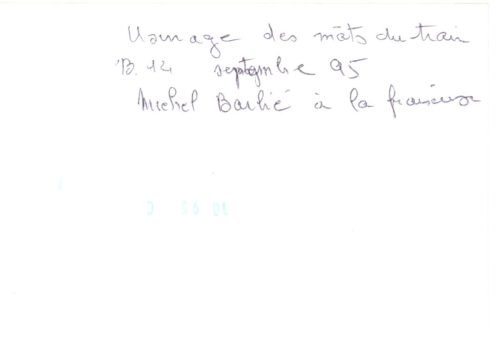 Usinage des mâts du train
B.14 septembre 95
Michel Barlié à la fraiseuse